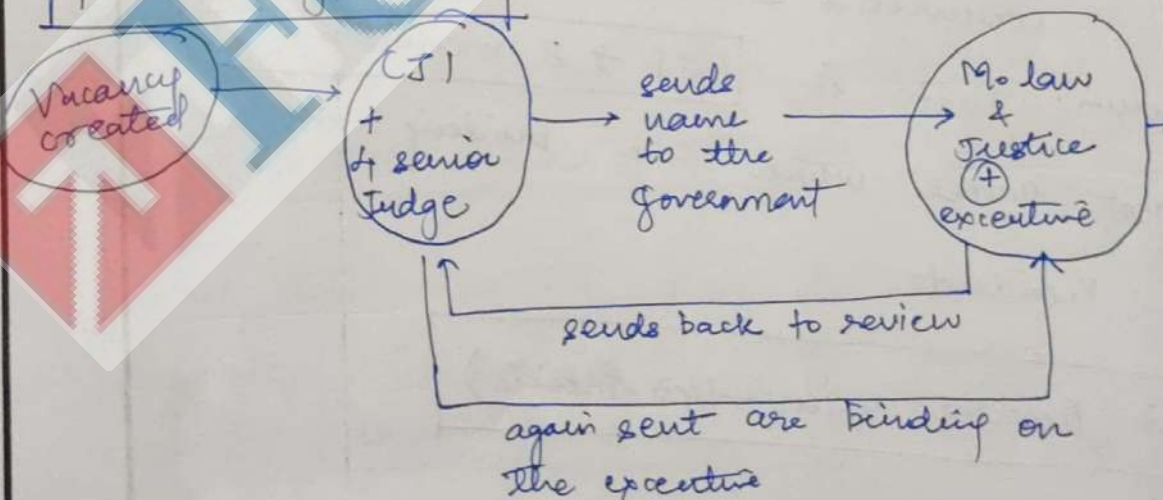 Vacancy
created
CJI
+
4 senior
Judge
sends
name
to the
government
Mo law
&
Justice
+
executive
sends back to review
again sent are binding on
the executive